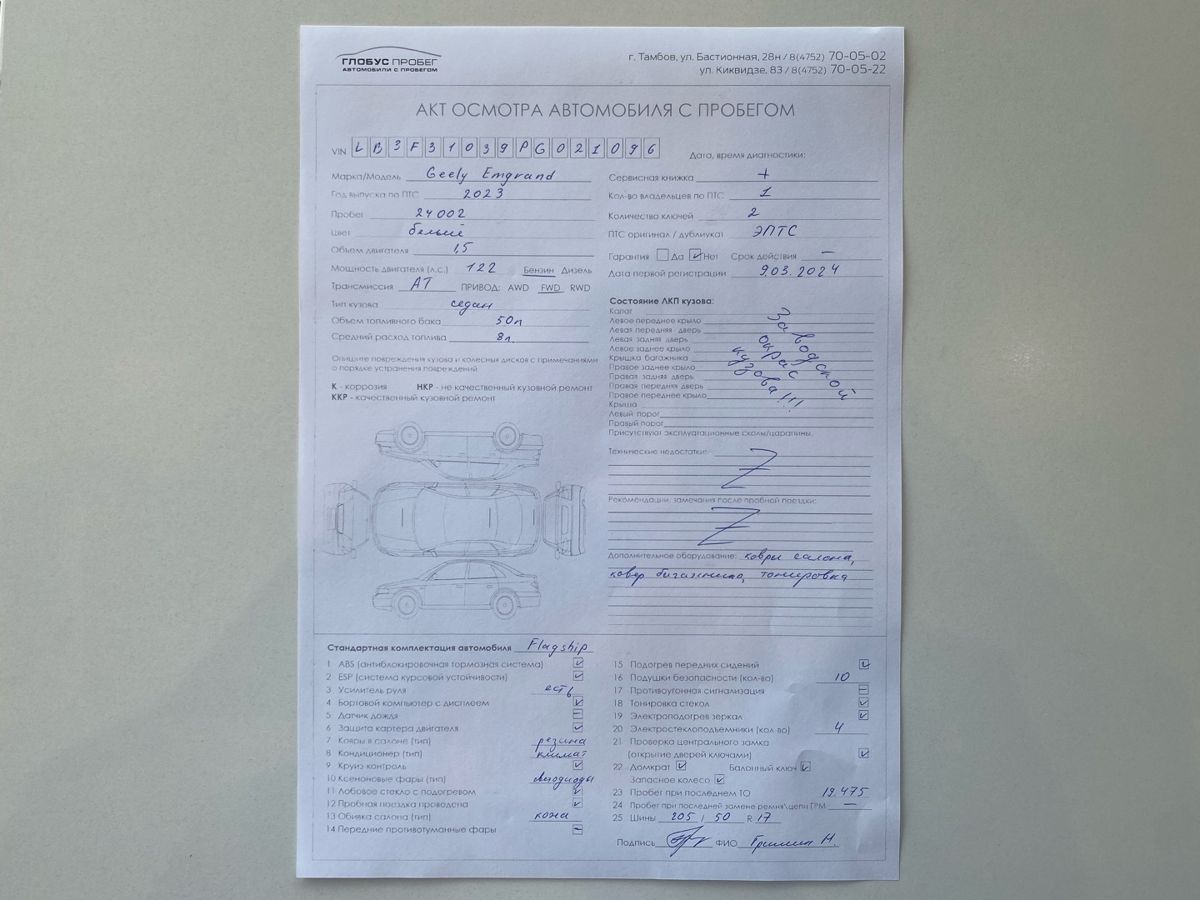 ГЛОБУС ПРОБЕГ
АВТОМОБИЛИ С ПРОБЕГОМ
г. Тамбов, ул. Бастионная, 28н / 8(4752) 70-05-02
ул. Киквидзе, 83 / 8(4752) 70-05-22
АКТ ОСМОТРА АВТОМОБИЛЯ С ПРОБЕГОМ
VIN LB3F31039PG021096
Марка/Модель Geely Emgrand
Год выпуска по ПТС 2023
Пробег 24002
Цвет белый
Объем двигателя 1,5
Мощность двигателя (л.с.) 122 Бензин Дизель
Трансмиссия АТ ПРИВОД: AWD FWD RWD
Тип кузова седан
Объем топливного бака 50л
Средний расход топлива 8л.
Опишите повреждения кузова и колесных дисков с примечаниями
о порядке устранения повреждений
К - коррозия НКР - не качественный кузовной ремонт
ККР - качественный кузовной ремонт
Дата, время диагностики:
Сервисная книжка +
Кол-во владельцев по ПТС 1
Количество ключей 2
ПТС оригинал / дубликат ЭПТС
Гарантия Да Нет Срок действия —
Дата первой регистрации 9.03.2024
Состояние ЛКП кузова:
Капот
Левое переднее крыло
Левая передняя дверь
Левая задняя дверь
Левое заднее крыло
Крышка багажника
Правое заднее крыло
Правая задняя дверь
Правая передняя дверь
Правое переднее крыло
Крыша
Левый порог
Правый порог
Заводской
окрас
кузова!!!
Присутствуют эксплуатационные сколы/царапины.
Технические недостатки: Z
Рекомендации, замечания после пробной поездки:
Z
Дополнительное оборудование: ковры салона,
ковер багажника, тонировка
Стандартная комплектация автомобиля Flagship
1 ABS (антиблокировочная тормозная система)
2 ESP (система курсовой устойчивости)
3 Усилитель руля есть
4 Бортовой компьютер с дисплеем
5 Датчик дождя
6 Защита картера двигателя
7 Ковры в салоне (тип) резина
8 Кондиционер (тип) климат
9 Круиз контроль
10 Ксеноновые фары (тип)
11 Лобовое стекло с подогревом
12 Пробная поездка проведена
13 Обивка салона (тип) кожа
14 Передние противотуманные фары
15 Подогрев передних сидений
16 Подушки безопасности (кол-во) 10
17 Противоугонная сигнализация
18 Тонировка стекол
19 Электроподогрев зеркал
20 Электростеклоподъемники (кол во) 4
21 Проверка центрального замка
(открытие дверей ключами)
22 Домкрат Балонный ключ
Запасное колесо
23 Пробег при последнем ТО 19.475
24 Пробег при последней замене ремня\цепи ГРМ —
25 Шины 205 / 50 R 17
Подпись ФИО